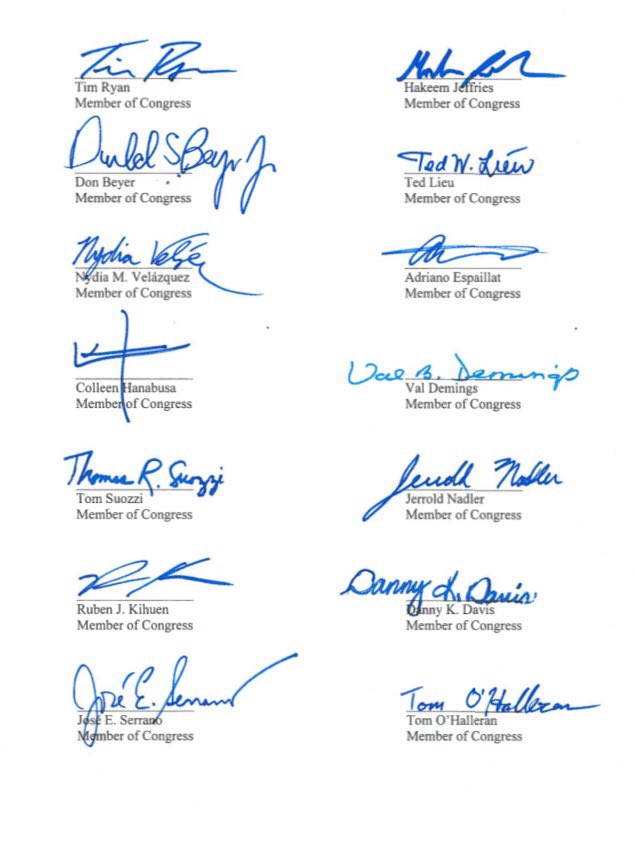 Tim Ryan
Tim Ryan
Member of Congress
Hakeem Jeffries
Member of Congress
Donald S. Beyer Jr
Don Beyer
Member of Congress
Ted W. Lieu
Ted Lieu
Member of Congress
Nydia
Nydia M. Velázquez
Member of Congress
Adriano Espaillat
Member of Congress
Colleen Hanabusa
Member of Congress
Val B. Demings
Val Demings
Member of Congress
Thomas R. Suozzi
Tom Suozzi
Member of Congress
Jerrold Nadler
Jerrold Nadler
Member of Congress
Ruben J. Kihuen
Member of Congress
Danny K. Davis
Danny K. Davis
Member of Congress
José E. Serrano
José E. Serrano
Member of Congress
Tom O'Halleran
Tom O'Halleran
Member of Congress